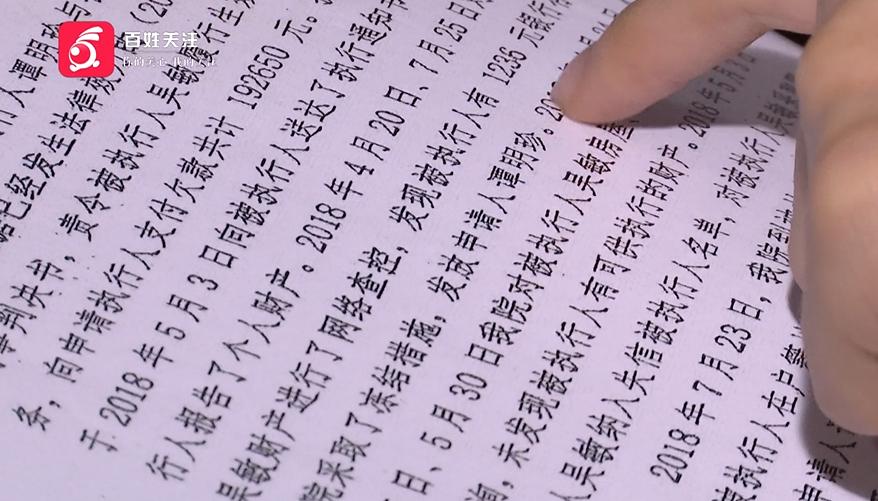 百姓关注
你的关心 我的关注
行人谭明珍与
已经发生法律效力(20
事判决书,责令被执行人吴敏履行
务,向申请执行人支付欠款共计 192650 元。
于 2018 年 5 月 3 日向被执行人送达了执行通知书
行人报告了个人财产。2018 年 4 月 20 日、7 月 25 日
吴敏财产进行了网络查控,发现被执行人有 1236 元
院采取了冻结措施,发放申请人谭明珍。20
日、5 月 30 日我院对被执行人吴敏房
询,未发现被执行人有可供执行的财产。2018 年 5 月 3
人吴敏纳入失信被执行人名单,
2018 年 7 月 23 日,我院到
执行人在户籍
申请人